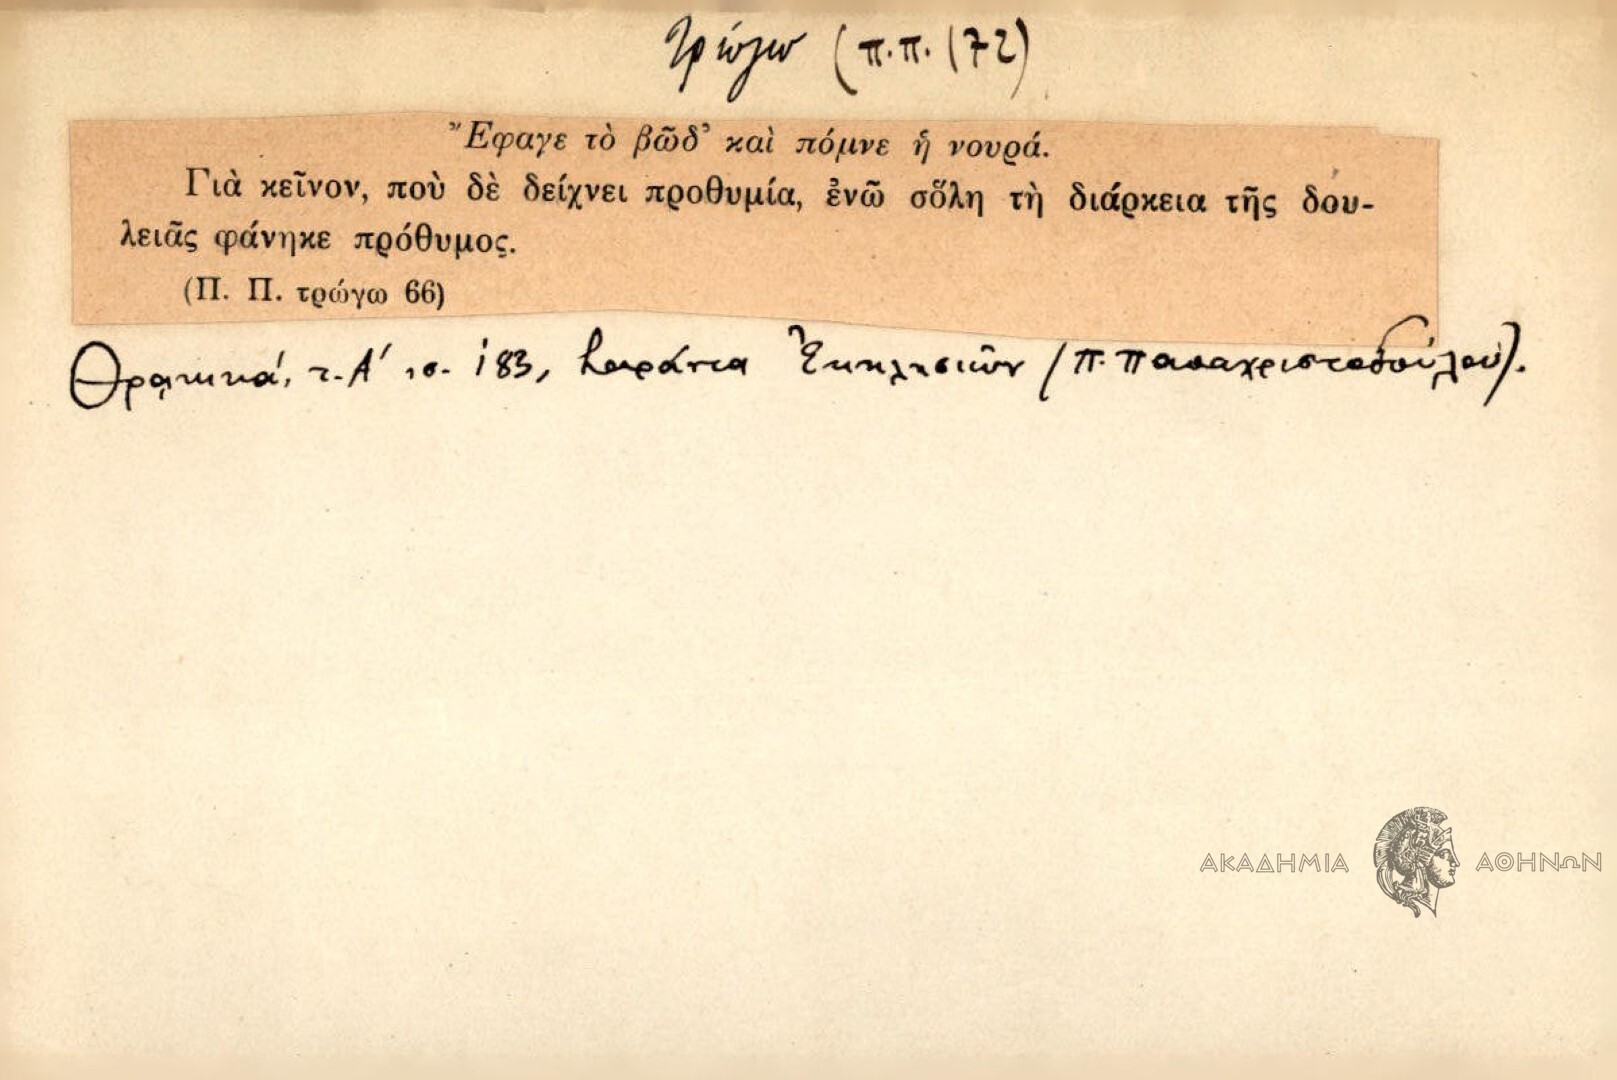 τρώγω (π.π. 172)
Ἔφαγε τὸ βῶδ’ καὶ πόμνε ἡ νουρά.
Γιὰ κεῖνον, ποὺ δὲ δείχνει προθυμία, ἐνῶ σὅλη τὴ διάρκεια τῆς δου-
λειᾶς φάνηκε πρόθυμος.
(Π. Π. τρώγω 66)
Θρᾳκικά, τ. Α' σ. 183, Σαράντα Ἐκκλησιῶν (Π. Παπαχριστοδούλου).
ΑΚΑΔΗΜΙΑ ΑΘΗΝΩΝ